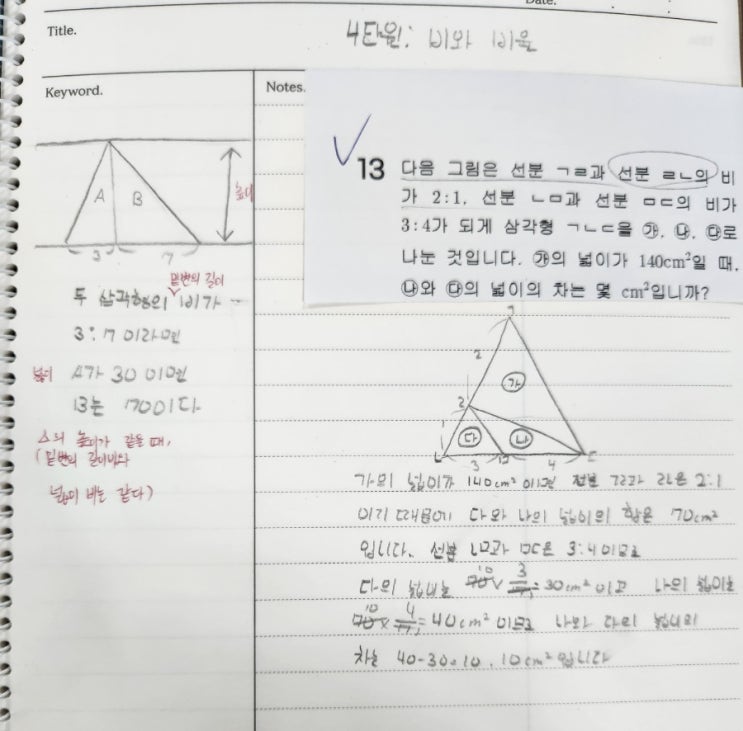 Date.
Title.
4단원: 비와 비율
Keyword.
Notes.
A
B
높이
3
7
밑변의 길이
두 삼각형의 비가
3:7 이라면
넓이 A가 30 이면
B는 70이다
△의 높이가 같을 때,
(밑변의 길이비와
넓이 비는 같다)
13 다음 그림은 선분 ㄱㄹ과 선분 ㄹㄴ의 비
가 2:1, 선분 ㄴㅁ과 선분 ㅁㄷ의 비가
3:4가 되게 삼각형 ㄱㄴㄷ을 ㉮, ㉯, ㉰로
나눈 것입니다. ㉮의 넓이가 140cm²일 때,
㉯와 ㉰의 넓이의 차는 몇 cm²입니까?
ㄱ
2
㉮
ㄹ
1
㉰
㉯
ㄴ
3
ㅁ
4
ㄷ
가의 넓이가 140cm² 이면 선분 ㄱㄹ과 ㄹㄴ은 2:1
이기 때문에 다와 나의 넓이의 합은 70cm²
입니다. 선분 ㄴㅁ과 ㅁㄷ은 3:4 이므로
다의 넓이는 70 10 × 3/7 1 = 30cm² 이고 나의 넓이는
70 10 × 4/7 1 = 40cm² 이므로 나와 다의 넓이의
차는 40-30=10, 10cm² 입니다